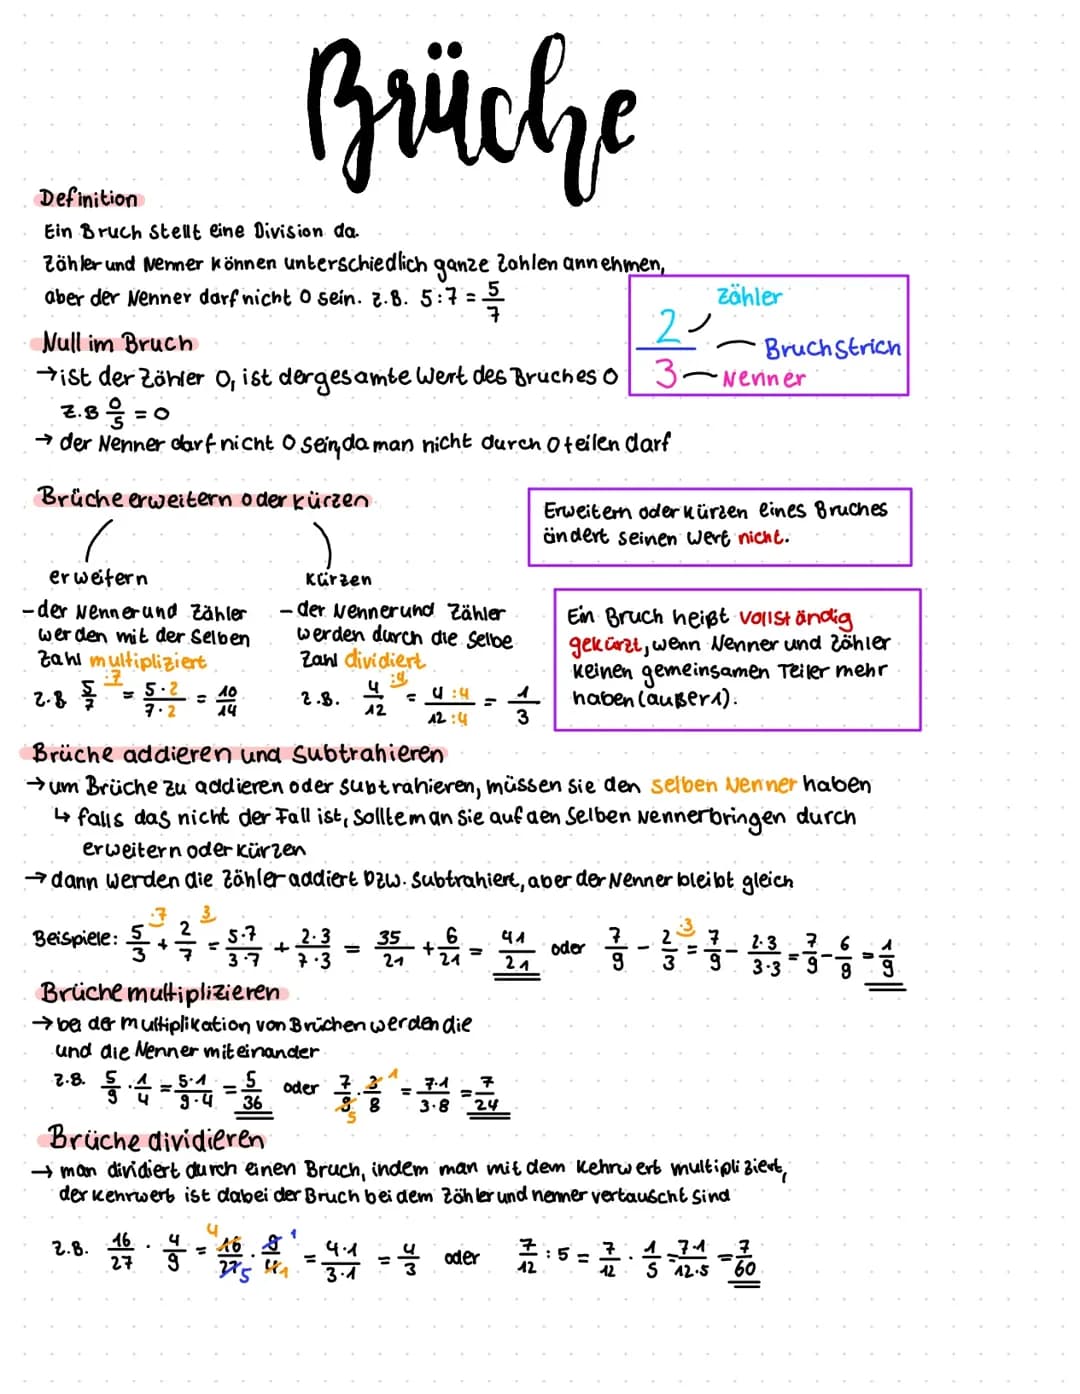 Brüche
Definition
Ein Bruch stellt eine Division da.
Zähler und Nenner können unterschiedlich ganze Zahlen annehmen,
aber der Nenner darf nicht 0 sein. z.B. 5:7 = 5/7
Zähler
2/3
Bruchstrich
Nenner
Null im Bruch
→ ist der Zähler 0, ist der gesamte Wert des Bruches 0
z.B 0/5 = 0
→ der Nenner darf nicht 0 sein, da man nicht durch 0 teilen darf
Brüche erweitern oder kürzen
Erweitern oder kürzen eines Bruches
ändert seinen Wert nicht.
erweitern
- der Nenner und Zähler
werden mit der selben
Zahl multipliziert
z.B 5/7 :7 = 5·2/7·2 = 10/14
kürzen
- der Nenner und Zähler
werden durch die selbe
Zahl dividiert
z.B. 4/12 :4 = 4:4/12:4 = 1/3
Ein Bruch heißt vollständig
gekürzt, wenn Nenner und Zähler
keinen gemeinsamen Teiler mehr
haben (außer 1).
Brüche addieren und subtrahieren
→ um Brüche zu addieren oder subtrahieren, müssen sie den selben Nenner haben
↳ falls das nicht der Fall ist, sollte man sie auf den selben Nenner bringen durch
erweitern oder kürzen
→ dann werden die Zähler addiert bzw. subtrahiert, aber der Nenner bleibt gleich
Beispiele: 5/3 ·7 + 2/7 3 = 5·7/3·7 + 2·3/7·3 = 35/21 + 6/21 = 41/21 oder 7/9 - 2/3 ·3 = 7/9 - 2·3/3·3 = 7/9 - 6/9 = 1/9
Brüche multiplizieren
→ bei der multiplikation von Brüchen werden die
und die Nenner miteinander
z.B. 5/9 · 1/4 = 5·1/9·4 = 5/36 oder 7/9 5 · 3/8 1 = 7·1/3·8 = 7/24
Brüche dividieren
→ man dividiert durch einen Bruch, indem man mit dem Kehrwert multipliziert,
der Kehrwert ist dabei der Bruch bei dem Zähler und nenner vertauscht sind
z.B. 16/27 · 4/9 = 4 16/27 5 · 9/4 1 1 = 4·1/3·1 = 4/3 oder 7/12 : 5 = 7/12 · 1/5 = 7·1/12·5 = 7/60